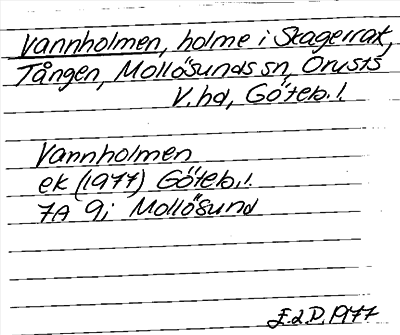 Vannholmen, holme i Skagerrak,
Tången, Mollösunds sn, Orusts
V. hd, Göteb. l.
Vannholmen
ek (1977) Göteb. l.
7A 9i Mollösund
E.a.D. 1977